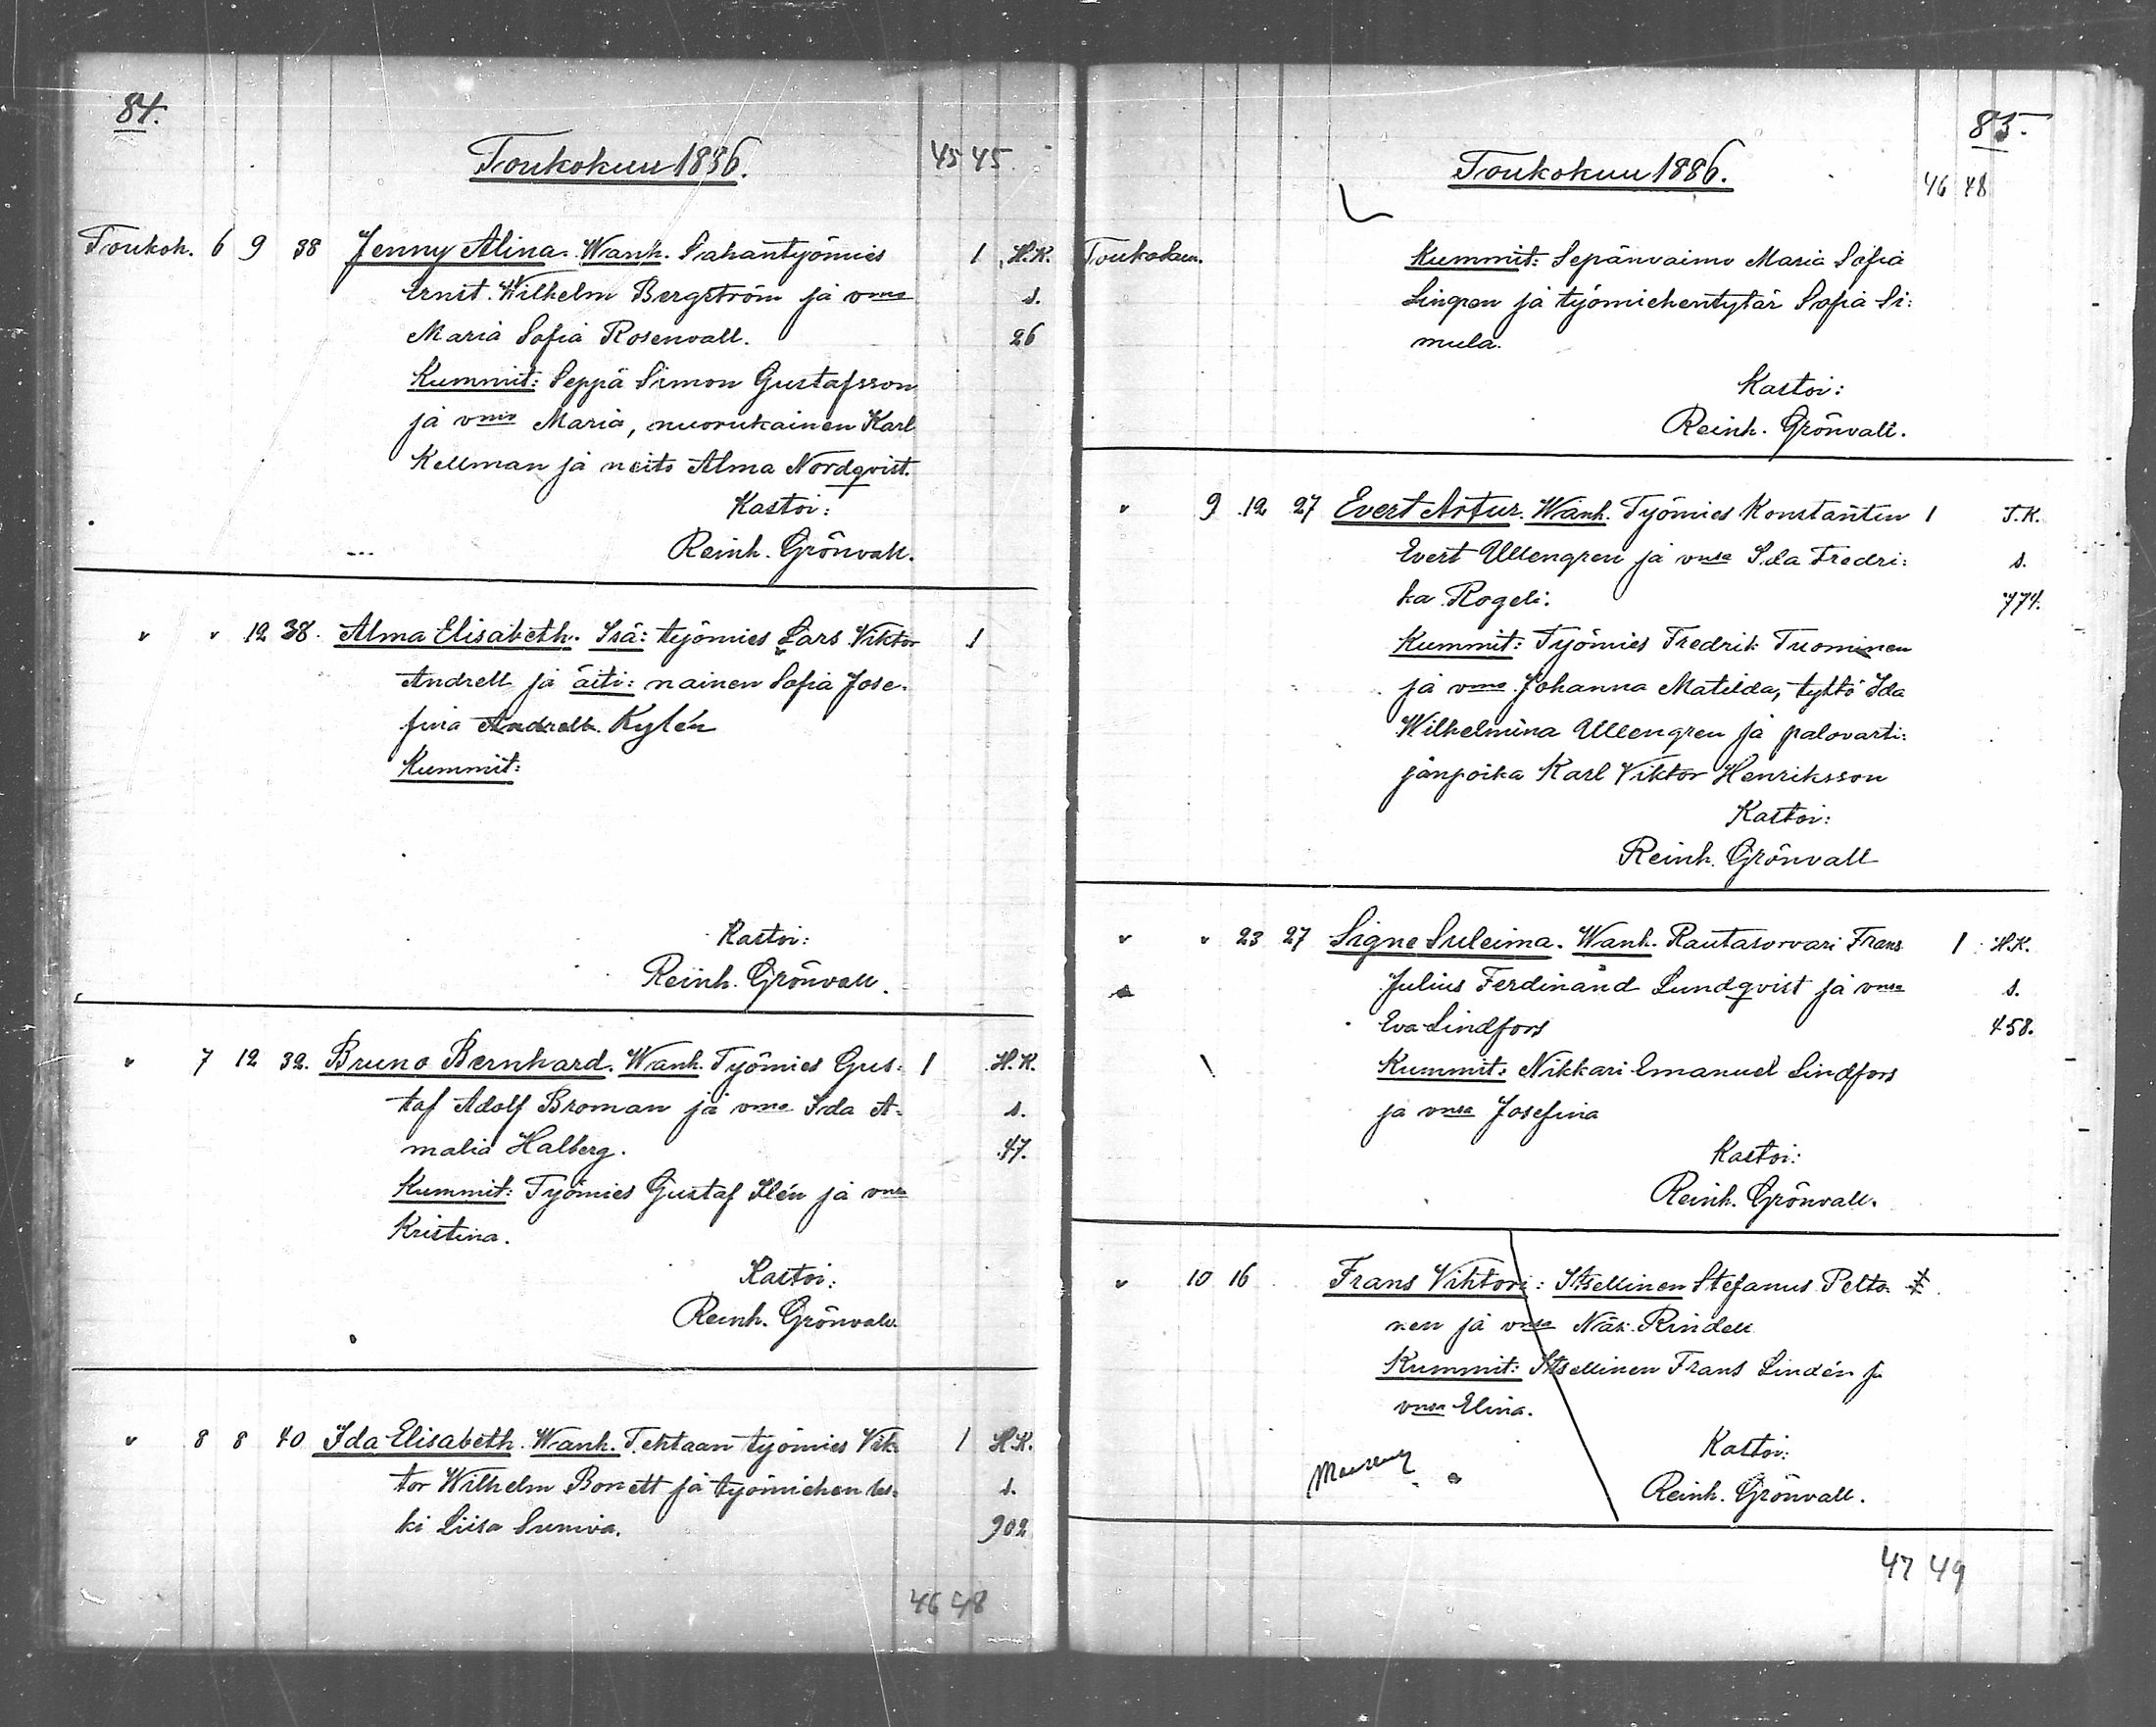 84.
Toukokuu 1886. 45 45
Toukok. 6 9 38 Jenny Alina. Wanh. Sahantyömies 1 H.K.
Ernst. Wilhelm Bergström ja vmo s.
Maria Sofia Rosenvall. 26
Kummit: Seppä Simon Gustafsson
ja vmo Maria, nuorukainen Karl
Kellman ja neito Alma Nordqvist.
Kastoi:
Reinh. Grönvall.
" " 12 38. Alma Elisabeth. Isä: työmies Lars Viktor 1
Andrell ja äiti: nainen Sofia Jose-
fina Andrell. Kylén
Kummit:
Kastoi:
Reinh. Grönvall.
" 7 12 32. Bruno Bernhard. Wanh. Työmies Gus- 1 H.K.
taf Adolf Broman ja vmo Ida A- s.
malia Halberg. 47.
Kummit: Työmies Gustaf Ilén ja vmsa
Kristina.
Kastoi:
Reinh. Grönvall.
" 8 8 40 Ida Elisabeth. Wanh. Tehtaan työmies Vik- 1 H.K.
tor Wilhelm Bonett ja työmiehen les- s.
ki Liisa 902
46 48
85.
Toukokuu 1886. 46 48
Toukokuu. Kummit: Sepänvaimo Maria Sofia
Lingren ja työmiehentytär Sofia Si:
mula.
Kastoi:
Reinh. Grönvall.
" 9 12 27 Evert Artur. Wanh. Työmies Konstantin 1 T.K.
Evert Ullengren ja vmsa Ida Fredri: s.
ka Rogeli. 774.
Kummit: Työmies Fredrik Tuominen
ja vmo Johanna Matilda, tyttö Ida
Wilhelmina Ullengren ja palovarti:
janpoika Karl Viktor Henriksson
Kastoi:
Reinh. Grönvall
" " 23 27 Signe Suleima. Wanh. Rautasorvari Frans 1 H.K.
Julius Ferdinand Lundqvist ja vmsa s.
Eva Lindfors 458.
Kummit: Nikkari Emanuel Lindfors
ja vmsa Josefina
Kastoi:
Reinh. Grönvall.
" 10 16 Frans Vihtori: Itsellinen Stefanus Pelto-
nen ja vmsa Näk. Rindell
Kummit: Itsellinen Frans Lindén ja
vmsa Elina.
Kastoi:
Reinh. Grönvall.
47 49